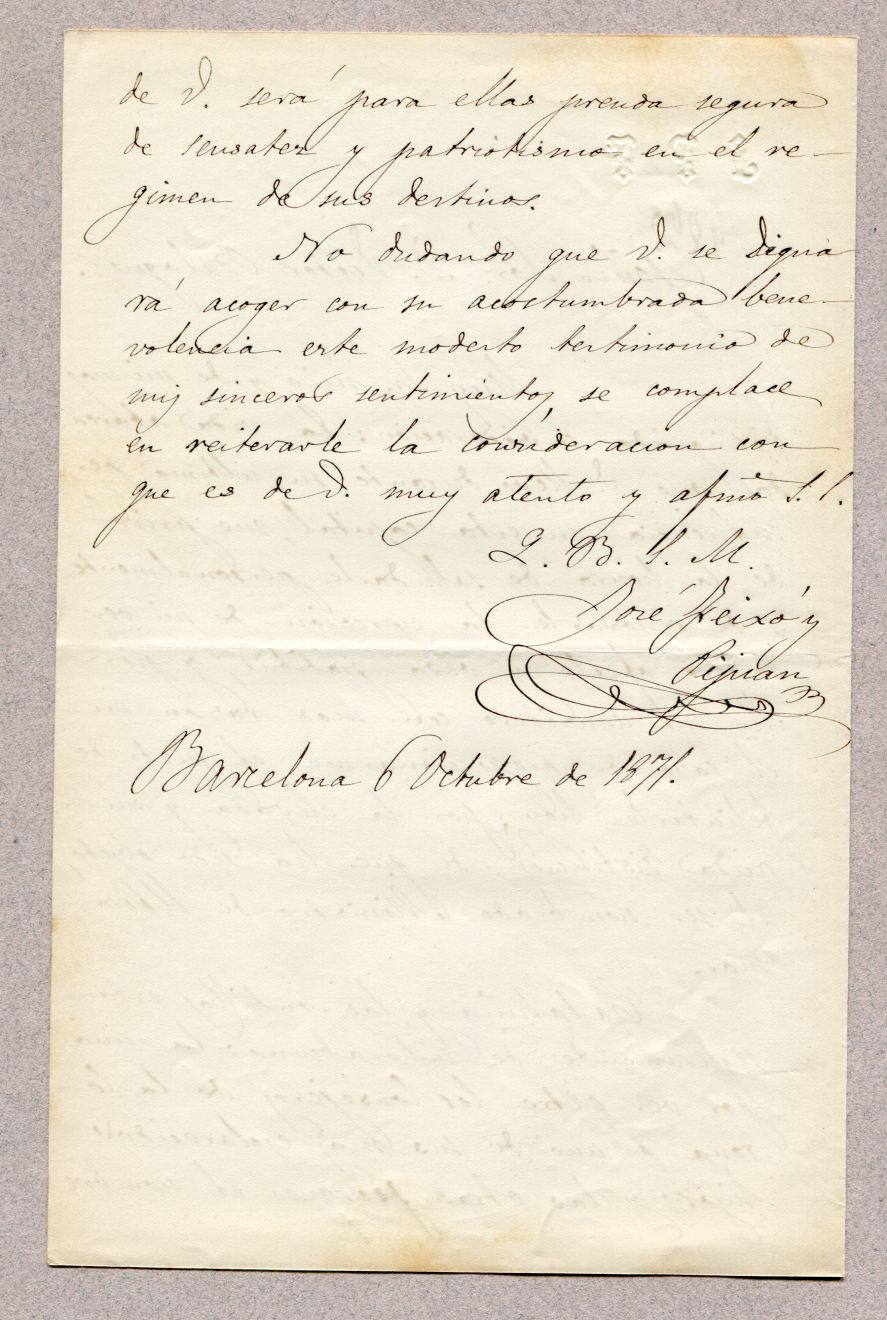 de V. será para ellas prenda segura
de sensatez y patriotismo en el re-
gimen de sus destinos.
No dudando que V. se digna
rá acoger con su acostumbrada bene-
volencia este modesto testimonio de
mis sinceros sentimientos, se complace
en reiterarle la consideracion con
que es de V. muy atento y afmo S. S.
Q. B. S. M.
José Feixó y
Pijuan
Barcelona 6 Octubre de 1871.